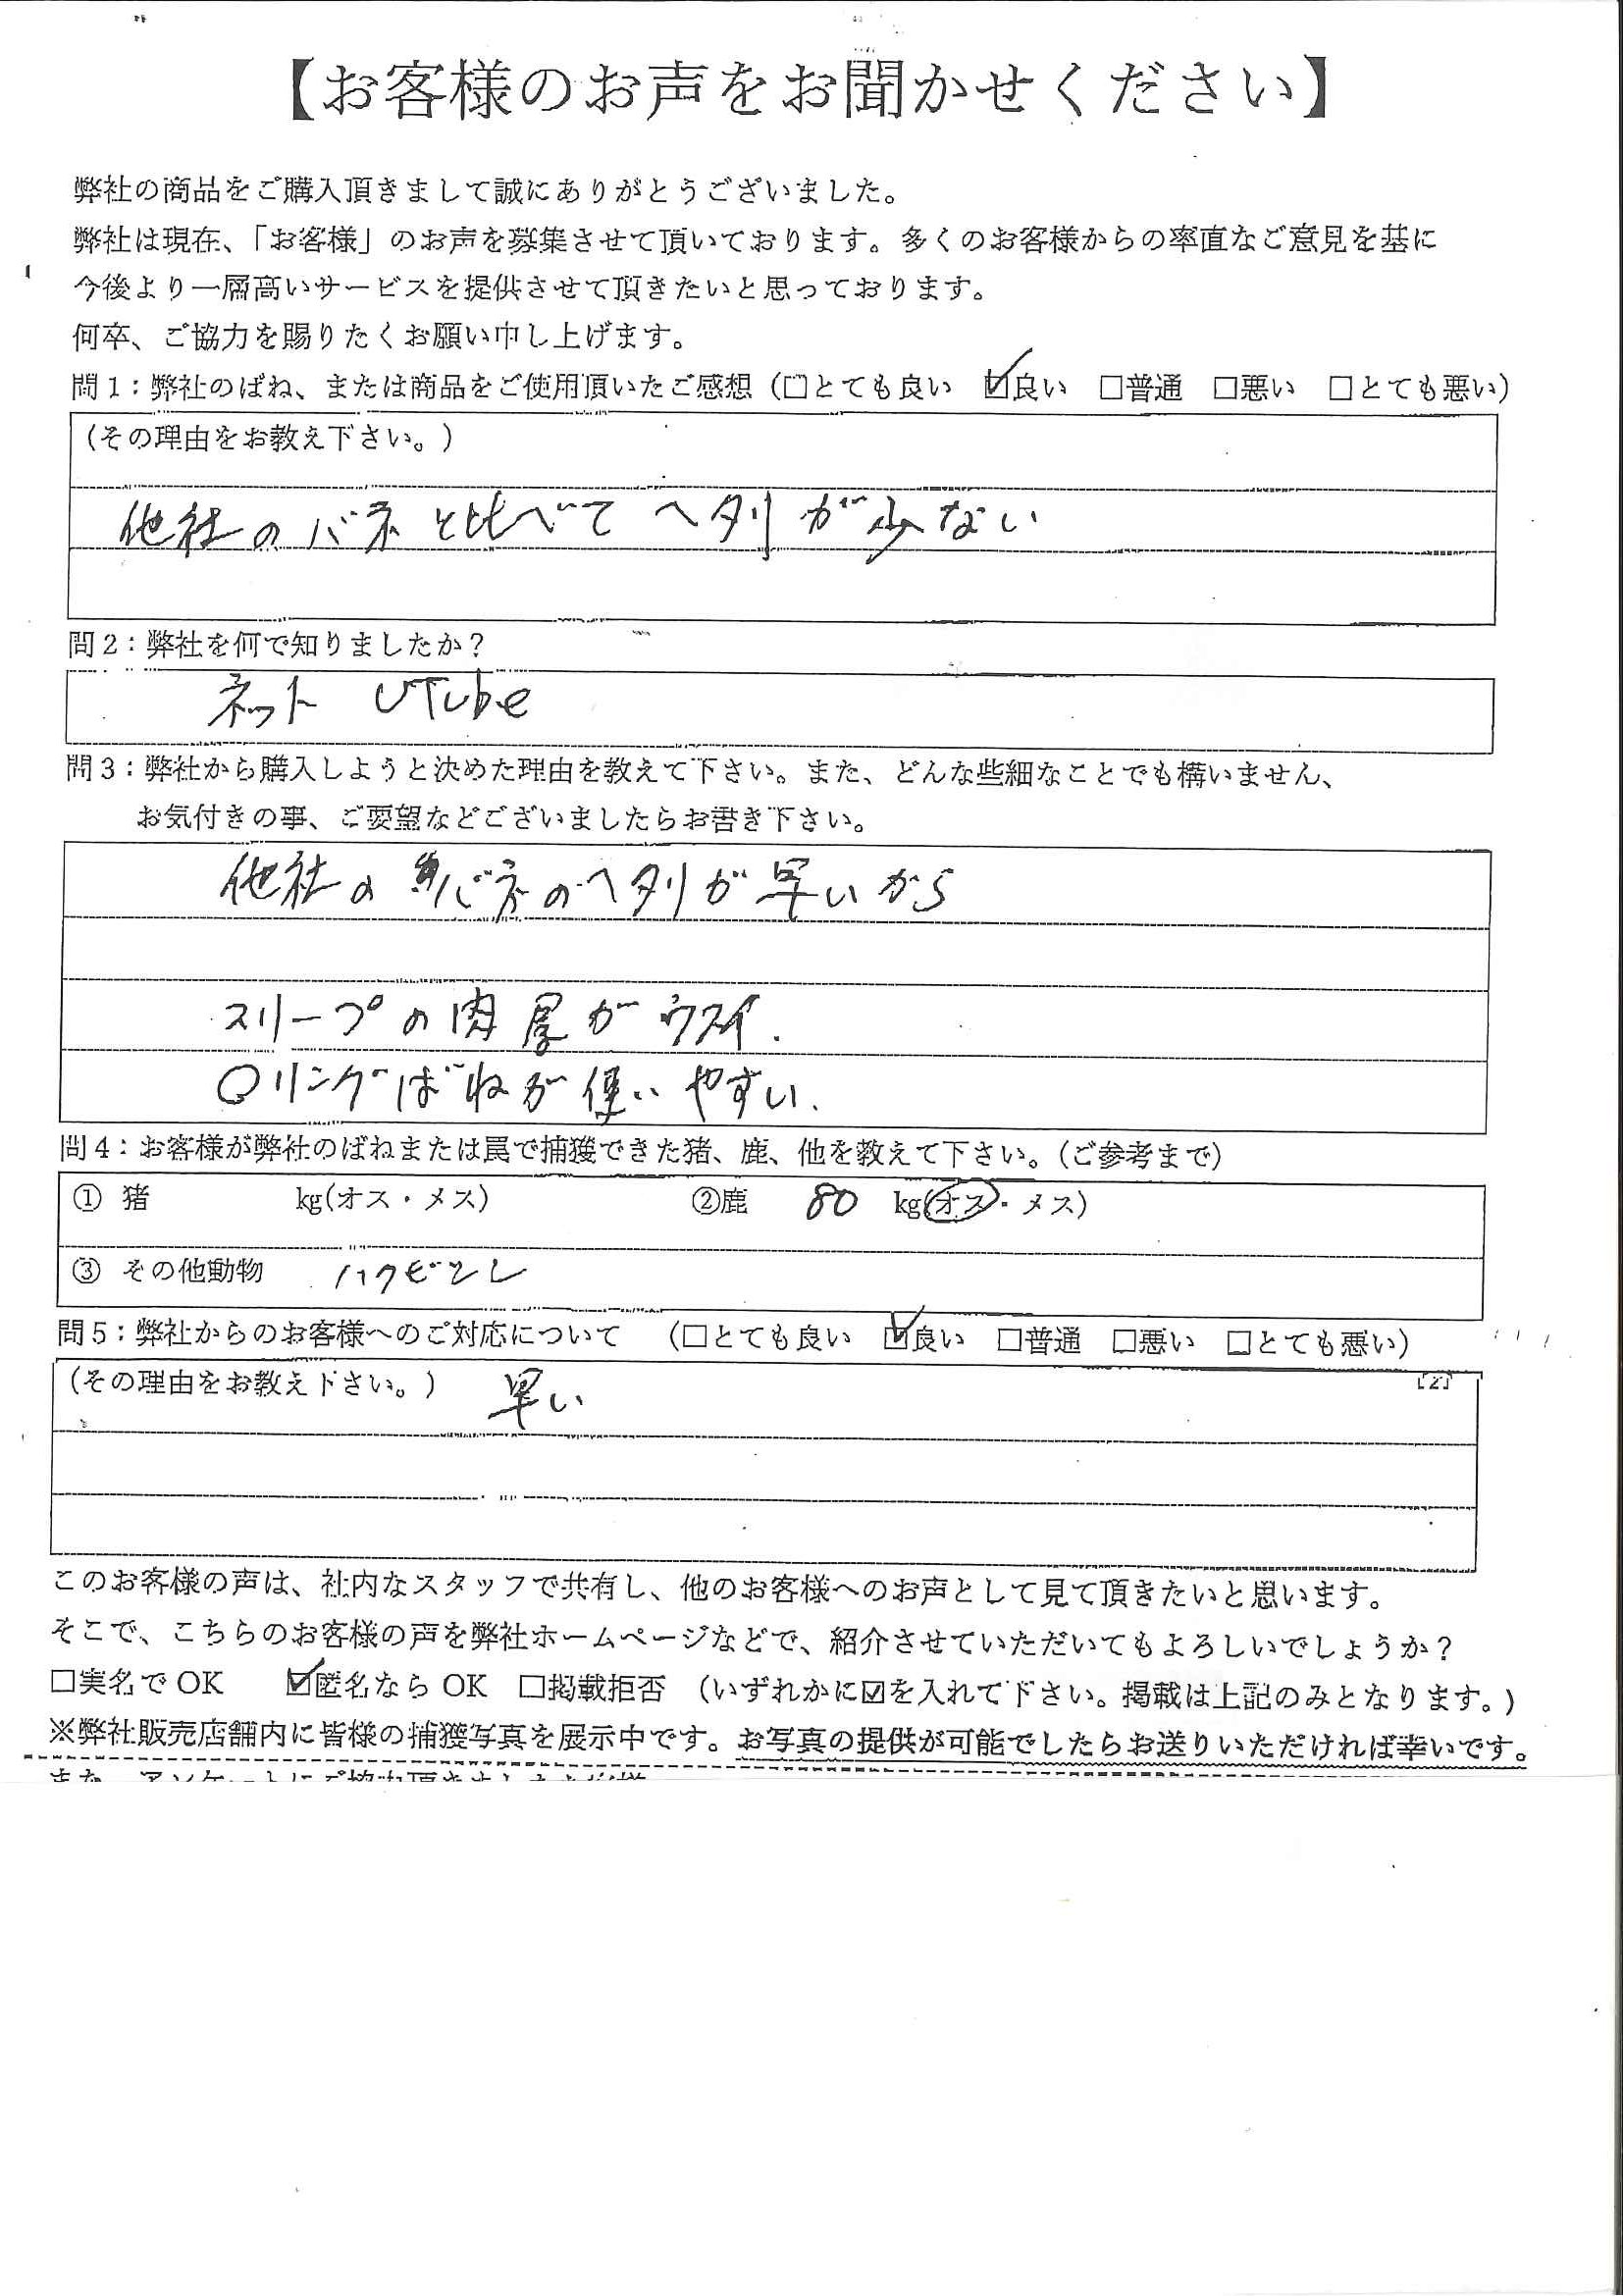 【お客様のお声をお聞かせください】
弊社の商品をご購入頂きまして誠にありがとうございました。
弊社は現在、「お客様」のお声を募集させて頂いております。多くのお客様からの率直なご意見を基に
今後より一層高いサービスを提供させて頂きたいと思っております。
何卒、ご協力を賜りたくお願い申し上げます。
問1：弊社のばね、または商品をご使用頂いたご感想（□とても良い ☑良い □普通 □悪い □とても悪い）
（その理由をお教え下さい。）
他社のバネと比べてヘタリが少ない
問2：弊社を何で知りましたか？
ネット UTube
問3：弊社から購入しようと決めた理由を教えて下さい。また、どんな些細なことでも構いません、
お気付きの事、ご要望などございましたらお書き下さい。
他社のバネのヘタリが早いから
スリーブの肉厚がウスイ.
〇リングばねが使いやすい.
問4：お客様が弊社のばねまたは罠で捕獲できた猪、鹿、他を教えて下さい。（ご参考まで）
① 猪 kg(オス・メス) ②鹿 80 kg(オス・メス)
③ その他動物 ハクビシン
問5：弊社からのお客様へのご対応について （□とても良い ☑良い □普通 □悪い □とても悪い）
（その理由をお教え下さい。） 早い
[2]
このお客様の声は、社内なスタッフで共有し、他のお客様へのお声として見て頂きたいと思います。
そこで、こちらのお客様の声を弊社ホームページなどで、紹介させていただいてもよろしいでしょうか？
□実名でOK ☑匿名ならOK □掲載拒否 （いずれかに☑を入れて下さい。掲載は上記のみとなります。）
※弊社販売店舗内に皆様の捕獲写真を展示中です。お写真の提供が可能でしたらお送りいただければ幸いです。